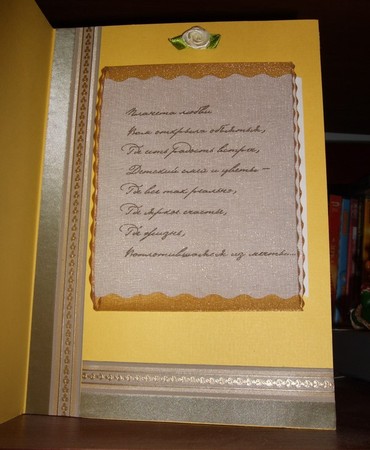 Планета любви
Вам открыла объятья,
Где есть радость встреч,
Детский смех и цветы –
Где все так реально,
Где яркое счастье,
Где жизнь,
Воплотившаяся из мечты...